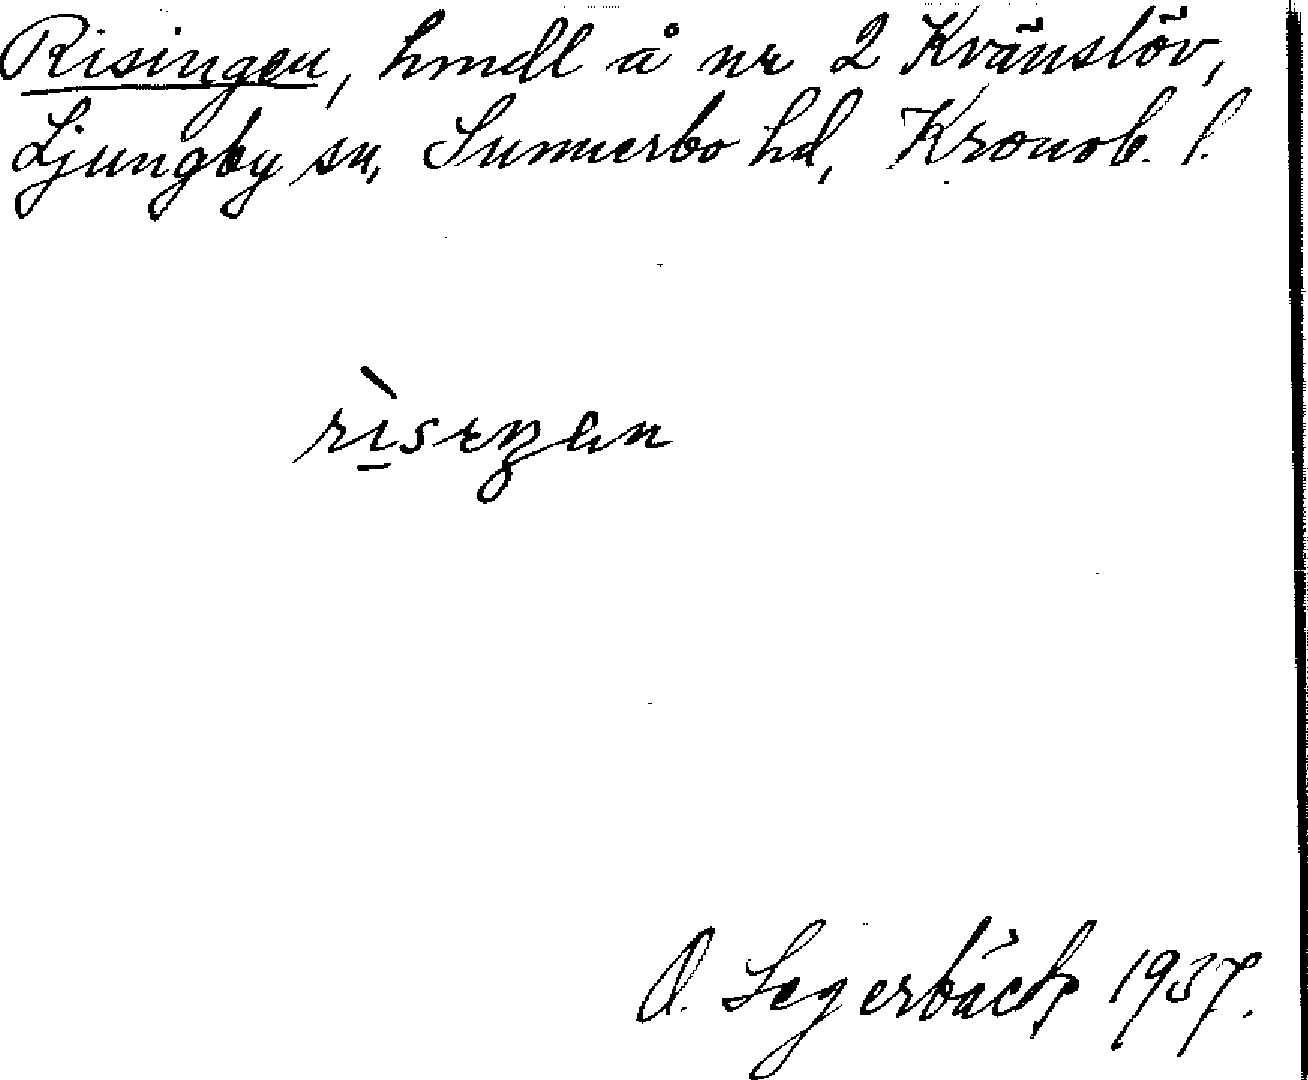 Risingen, hmdl å nr 2 Kvänslöv,
Ljungby sn, Sunnerbo hd, Kronob. l.
rìsiŋen
O. Segerbäck 1937.